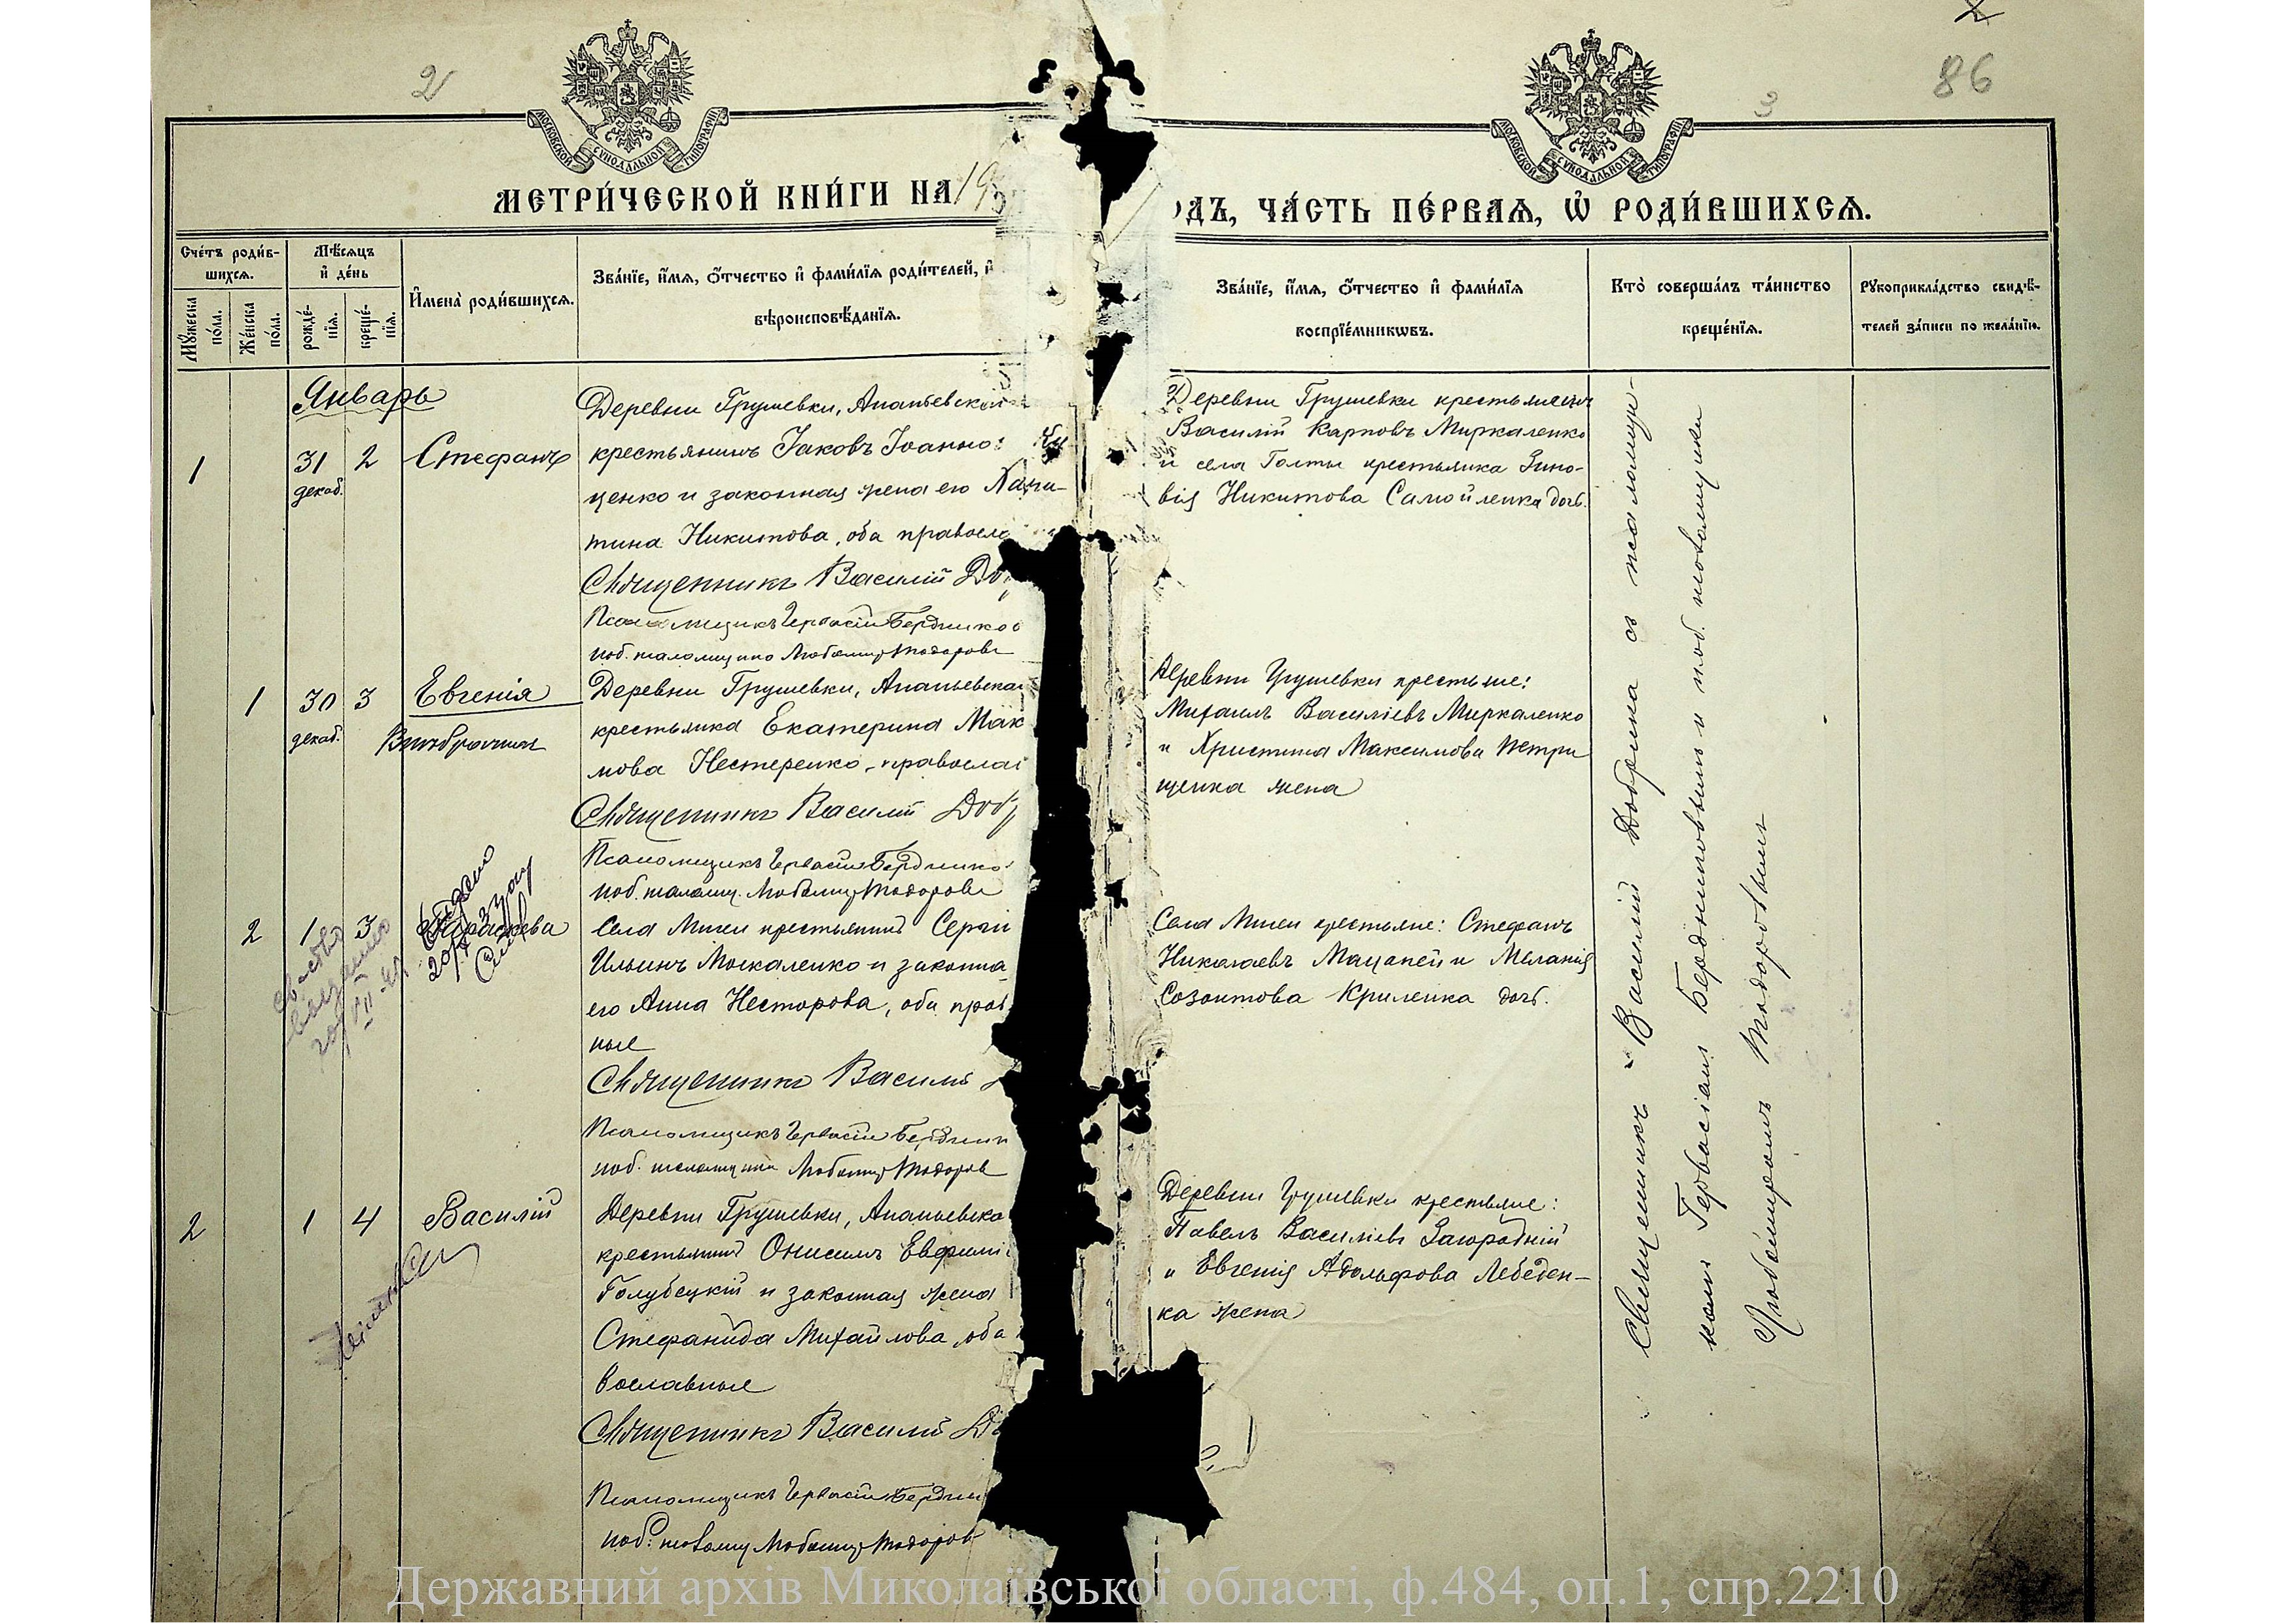 2
86
3
МОСКОВСКОЙ СУНОДАЛЬНОЙ ТИПОГРАФІИ
МОСКОВСКОЙ СУНОДАЛЬНОЙ ТИПОГРАФІИ
МЕТРИ́ЧЕСКОЙ КНИ́ГИ НА 19
ОДЪ, ЧА́СТЬ ПЕ́РВАѦ, Ѡ҆ РОДИ́ВШИХСѦ.
Сче́тъ роди́в-
шихсѧ.
Мꙋ́жеска по́ла.
Же́нска по́ла.
Мѣ́сѧцъ
и҆ де́нь
рожде́-
нїѧ.
креще́-
нїѧ.
И҆мена̀ роди́вшихсѧ.
Зва́нїе, и҆́мѧ, ѻ҆́тчество и҆ фами́лїѧ роди́телей, и҆
вѣроисповѣ́данїѧ.
Зва́нїе, и҆́мѧ, ѻ҆́тчество и҆ фами́лїѧ
воспрїе́мникѡвъ.
Кто̀ соверша́лъ та́инство
креще́нїѧ.
Рꙋкоприкла́дство свидѣ́-
телей за́писи по жела́нїю.
Январь
1
31
декаб.
2
Стефанъ
Деревни Грушевки, Ананьевской
крестьянинъ Іаковъ Іоанно
ценко и законная жена его
тина Никитова, оба правосла
Священникъ Василій До
Псаломщикъ Гервасій Бердников
иоб. псаломщика Любомиръ Тодоровъ
Деревни Грушевки крестьянинъ
Василій Карповъ Миркаленко
и села Голты крестьянка Зино-
вія Никитова Самойленка дочь.
1
30
декаб.
3
Евгенія
Внѣбрачная
Деревни Грушевки, Ананьевска
крестьянка Екатерина Мак
мова Нестеренко, православ
Священникъ Василій Добр
Псаломщикъ Гервасій Берднико
иоб. псаломщ. Любомиръ Тодоровъ
Деревни Грушевки крестьяне:
Михаилъ Василіевъ Миркаленко
и Христина Максимова Петри
щенка жена
2
1
3
Параскева
Села Мигеи крестьянинъ Сергій
Ильинъ Москаленко и законна
его Анна Несторова, оба прав
ные
Священникъ Василій
Псаломщикъ Гервасій Бердник
иоб. псаломщика Любомиръ Тодоров
Села Мигеи крестьяне: Стефанъ
Николаевъ Мацапей и Меланія
Созонтова Криленка дочь.
2
1
4
Василій
Деревни Грушевки, Ананьевско
крестьянинъ Онисимъ Евфимі
Голубецкій и законная жена
Стефанида Михайлова, оба
вославные
Священникъ Василій До
Псаломщикъ Гервасій Бердни
иоб. псаломщ Любомиръ Тодоров
Деревни Грушевки крестьяне:
Павелъ Василіевъ Загородній
и Евгенія Адольфова Лебеден-
ка жена
Священникъ Василій Добрина съ псаломщи-
комъ Гервасіемъ Бердниковымъ и иоб. псаломщика
Любомиромъ Тодоровымъ
Державний архів Миколаївської області, ф.484, оп.1, спр.2210